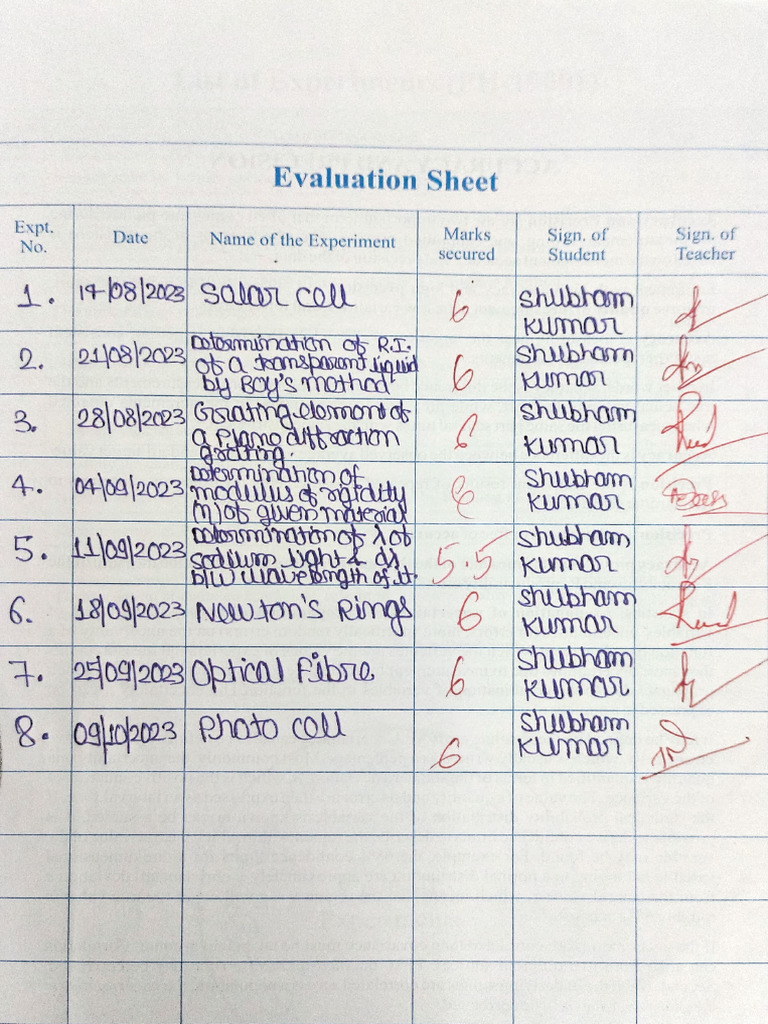 Evaluation Sheet
Expt. No. Date Name of the Experiment Marks secured Sign. of Student Sign. of Teacher
1. 14/08/2023 Solar cell 6 Shubham Kumar
2. 21/08/2023 Determination of R.I. of a transparent liquid by Boy's method 6 Shubham Kumar
3. 28/08/2023 Grating element of a Plano diffraction grating. 6 Shubham Kumar
4. 04/09/2023 Determination of modulus of rigidity (η) of given material Shubham Kumar
5. 11/09/2023 Determination of λ of sodium light & dλ b/w wavelength of it. 5.5 Shubham Kumar
6. 18/09/2023 Newton's Rings 6 Shubham Kumar
7. 25/09/2023 Optical Fibre 6 Shubham Kumar
8. 09/10/2023 Photo cell 6 Shubham Kumar